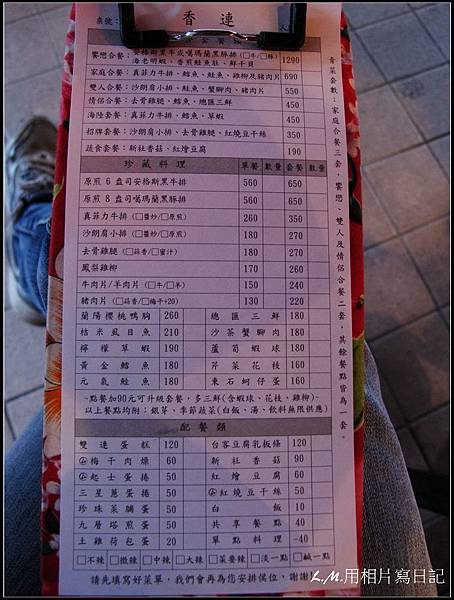 桌號：
香連
人
饗戀合餐：安格斯黑牛或噶瑪蘭黑豚排(□牛/□豚) 1290
海老明蝦、香煎鮭魚肚、鮮干貝
家庭合餐：真菲力牛排、鱈魚、鮭魚、雞柳及豬肉片 690
雙人合餐：沙朗肩小排、鮭魚、蟹腳肉、豬肉片 550
情侶合餐：去骨雞腿、鱈魚、總匯三鮮 450
海陸套餐：真菲力牛排、鱈魚、草蝦 450
招牌套餐：沙朗肩小排、去骨雞腿、紅燒豆干絲 350
蔬食套餐：新社香菇、紅燴豆腐 190
珍藏料理 單餐 數量 套餐 數量
原煎6盎司安格斯黑牛排 560 650
原煎8盎司噶瑪蘭黑豚排 560 650
真菲力牛排(□醬炒/□原煎) 260 350
沙朗肩小排(□醬炒/□原煎) 180 270
去骨雞腿(□蒜香/□蜜汁) 180 270
鳳梨雞柳 170 260
牛肉片/羊肉片(□牛/□羊) 150 240
豬肉片(□蒜香/□梅干+20) 130 220
蘭陽櫻桃鴨胸 260 總匯三鮮 180
桔米虱目魚 210 沙茶蟹腳肉 180
檸檬草蝦 190 蘆筍蝦球 180
黃金鱈魚 180 芹菜花枝 160
元氣鮭魚 180 東石蚵仔蛋 160
~點餐加90元可升級套餐，多三鮮(含蝦球、花枝、雞柳)~
以上餐點均附：銀芽、季節蔬菜(白飯、湯、飲料無限供應)
配餐類
雙連蛋糕 120 台客豆腐乳板條 120
梅干肉燥 60 新社香菇 90
起士蛋捲 50 紅燴豆腐 60
三星蔥蛋捲 50 紅燒豆干絲 50
珍珠菜脯蛋 50 白飯 10
九層塔煎蛋 50 共享餐點 40
土雞荷包蛋 20 單點料理 -40
□不辣 □微辣 □中辣 □大辣 □菜要辣 □淡一點 □鹹一點
請先填寫好菜單，我們會再為您安排侯位，謝謝!
青菜套數：家庭合餐三套，饗戀、雙人及情侶合餐二套，其餘餐點皆為一套。
L.M.用相片寫日記